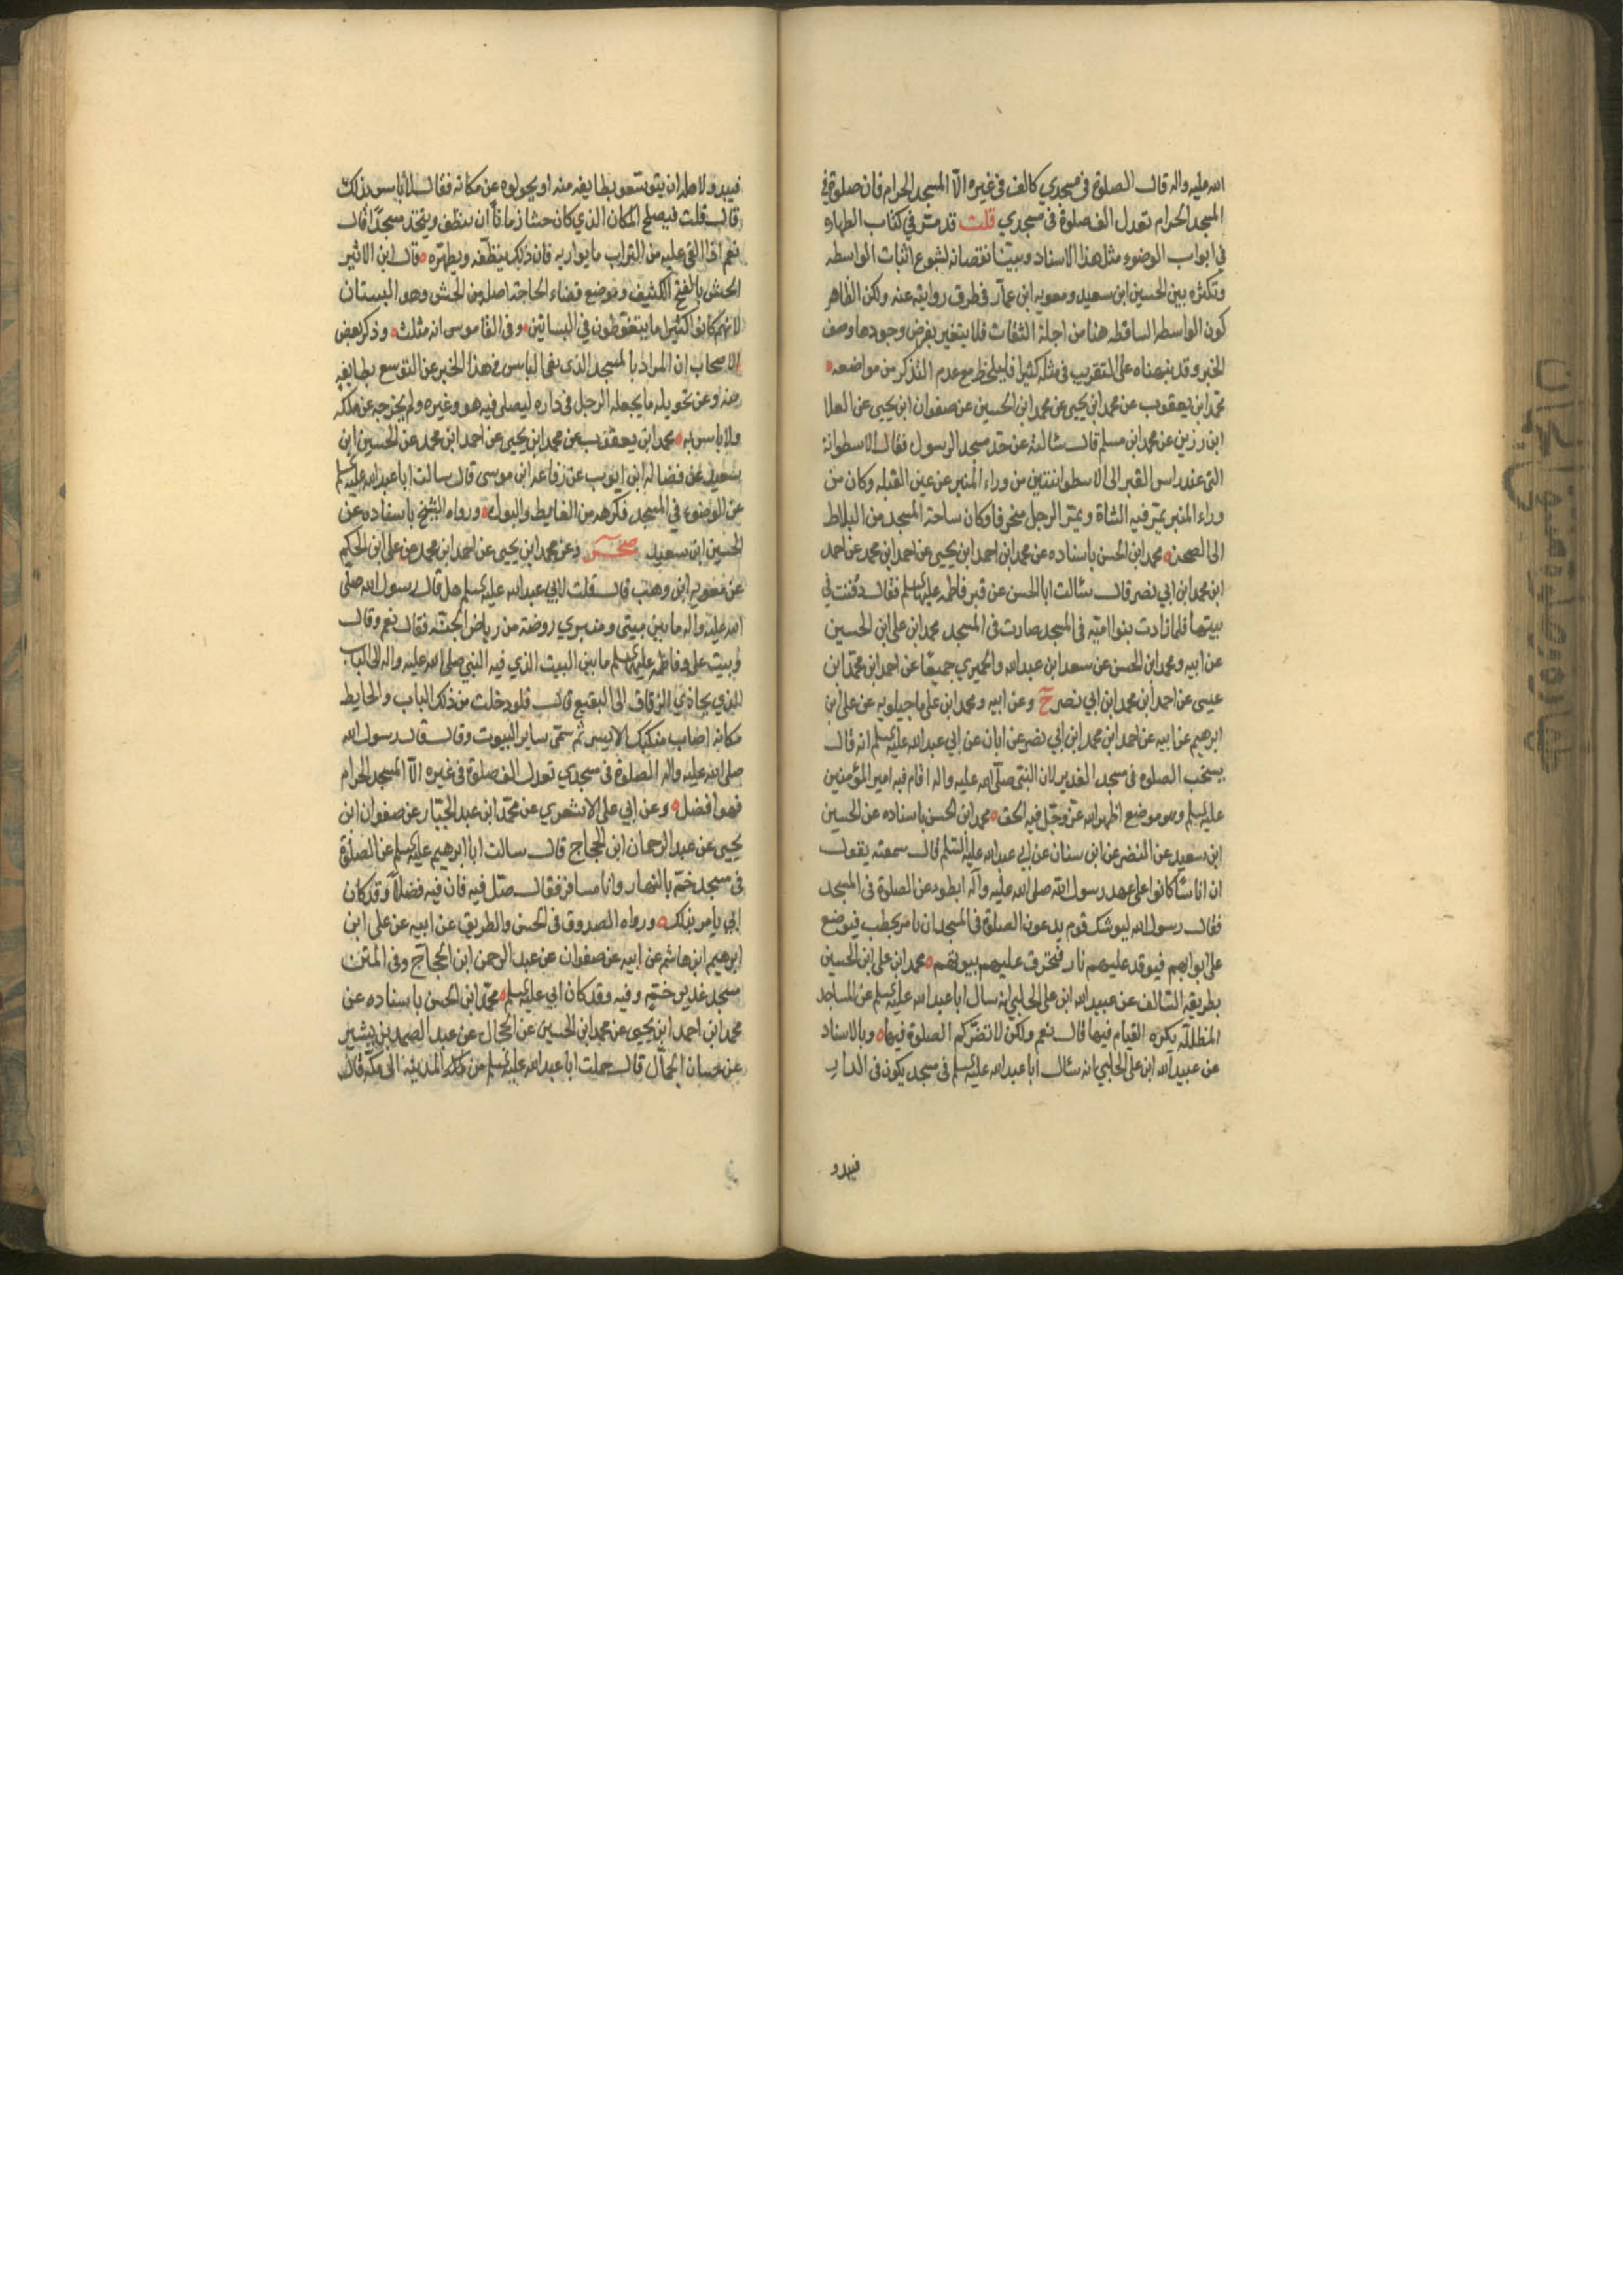 الله عليه واله قال الصلوة في مسجدي كالف في غيره الا المسجد الحرام فان صلوة في
المسجد الحرام تعدل الف صلوة في مسجدي قلت قد مر في كتاب الطهارة
في ابواب الوضوء مثل هذا الاسناد وبينا نقصانه لشيوع اثبات الواسطه
وتكثره بين الحسين ابن سعيد ومعويه ابن عمار في طرق روايته عنه ولكن الظاهر
كون الواسطه الساقطه هنا من اجلة الثقات فلا يتغير بفرض وجودها وصف
الخبر وقد نبهناه على التقريب في مثله كثيرا فليلحظ مع عدم التذكر من مواضعه
محمد ابن يعقوب عن محمد ابن يحيى عن محمد ابن الحسين عن صفوان ابن يحيى عن العلا
ابن رزين عن محمد ابن مسلم قال سئالته عن حد مسجد الرسول فقال الاسطوانة
التي عند راس القبر الى الاسطوانتين من وراء المنبر عن عين القبله وكان من
وراء المنبر يمر فيه الشاة ويمر الرجل منحرفا وكان ساحة المسجد من البلاط
الى الصحن محمد ابن الحسن باسناده عن محمد ابن احمد ابن يحيى عن احمد ابن محمد عن احمد
ابن محمد ابن ابي نصر قال سئالت ابا الحسن عن قبر فاطمه عليها السلم فقال دفنت في
بيتها فلما زادت بنوا اميه في المسجد صارت في المسجد محمد ابن علي ابن الحسين
عن ابيه ومحمد ابن الحسن عن سعد ابن عبد الله والحميري جميعا عن احمد ابن محمد ابن
عيسى عن احمد ابن محمد ابن ابي نصر ح وعن ابيه ومحمد ابن علي ماجيلويه عن علي ابن
ابرهيم عن ابيه عن احمد ابن محمد ابن ابي نصر عن ابان عن ابي عبد الله عليه السلم انه قال
يستحب الصلوة في مسجد الغدير لان النبي صلى الله عليه واله اقام فيه امير المؤمنين
عليه السلم وهو موضع اظهر الله عز وجل فيه الحق محمد ابن الحسن باسناده عن الحسين
ابن سعيد عن النضر عن ابن سنان عن ابي عبد الله عليه السلم قال سمعته يقول
ان اناسا كانوا على عهد رسول الله صلى الله عليه وآله ابطوء عن الصلوة في المسجد
فقال رسول الله ليوشك قوم يدعون الصلوة في المسجد ان نامر بحطب فيوضع
على ابوابهم فيوقد عليهم نار فتحرق عليهم بيوتهم محمد ابن علي ابن الحسين
بطريقه السالف عن عبيد الله ابن علي الحلبي انه سال ابا عبد الله عليه السلم عن المساجد
المظللة يكره القيام فيها قال نعم ولكن لا تضركم الصلوة فيها وبالاسناد
عن عبيد الله ابن علي الحلبي انه سئال ابا عبد الله عليه السلم في مسجد يكون في الدار
فيبدو
فيبدو لاهله ان يتوسعوا بطايفه منه او يحولوه عن مكانه فقال لا باس بذلك
قال قلت فيصلح المكان الذي كان حشا زمانا ان ينظف ويتخذ مسجدا قال
نعم اذا القي عليه من التراب ما يواريه فان ذلك ينظفه ويطهره قال ابن الاثير
الحش بالفتح الكنيف وموضع قضاء الحاجة اصله من الحش وهو البستان
لانهم كانوا كثيرا ما يتغوطون في البساتين وفي القاموس انه مثلث وذكر بعض
الاصحاب ان المراد بالمسجد الذي نفى الباس في هذا الخبر عن التوسع بطايفه
منه وعن تحويله ما يجعله الرجل في داره ليصلى فيه هو وغيره ولم يخرجه عن ملكه
ولا باس به محمد ابن يعقوب عن محمد ابن يحيى عن احمد ابن محمد عن الحسين ابن
سعيد عن فضاله ابن ايوب عن رفاعه ابن موسى قال سالت ابا عبد الله عليه السلم
عن الوضوء في المسجد فكرهه من الغايط والبول ورواه الشيخ باسناده عن
الحسين ابن سعيد صحر وعن محمد ابن يحيى عن احمد ابن محمد عن علي ابن الحكم
عن معويه ابن وهب قال قلت لابي عبد الله عليه السلم هل قال رسول الله صلى
الله عليه واله ما بين بيتي ومنبري روضة من رياض الجنة فقال نعم وقال
وبيت علي وفاطمه عليهما السلم ما بين البيت الذي فيه النبي صلى الله عليه واله الى الباب
الذي يحاذي الزقاق الى البقيع قال فلو دخلت من ذلك الباب والحايط
مكانه اصاب منكبك الايسر ثم سمى ساير البيوت وقال قال رسول الله
صلى الله عليه واله الصلوة في مسجدي تعدل الف صلوة في غيره الا المسجد الحرام
فهو افضل وعن ابي علي الاشعري عن محمد ابن عبد الجبار عن صفوان ابن
يحيى عن عبد الرحمان ابن الحجاج قال سالت ابا ابرهيم عليه السلم عن الصلوة
في مسجد خم بالنهار وانا مسافر فقال صل فيه فان فيه فضلا وقد كان
ابي يامر بذلك ورواه الصدوق في الحسن والطريق عن ابيه عن علي ابن
ابرهيم ابن هاشم عن ابيه عن صفوان عن عبد الرحمن ابن الحجاج وفي المتن
مسجد غدير خم وفيه وقد كان ابي عليه السلم محمد ابن الحسن باسناده عن
محمد ابن احمد ابن يحيى عن محمد ابن الحسين عن الحجال عن عبد الصمد بن بشير
عن حسان الجمال قال حملت ابا عبد الله عليه السلم من المدينه الى مكه قال